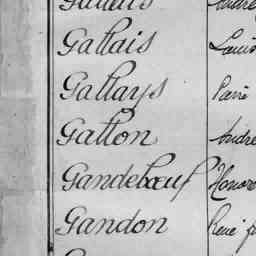 Gallais Louis
Gallays
Gallon André
Gandebœuf Honoré
Gandon René